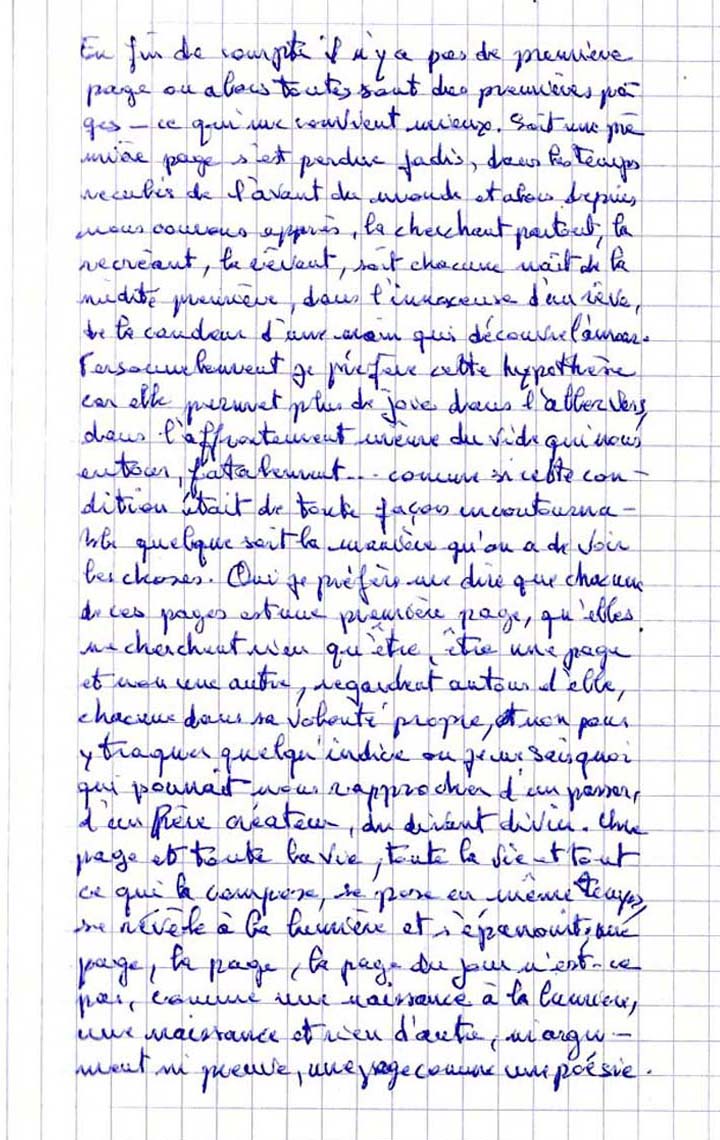 En fin de compte il n'y a pas de première
page ou alors toutes sont des premières pa
ges — ce qui me convient mieux. Soit une pre
mière page s'est perdue jadis, dans les temps
reculés de l'avant du monde et alors depuis
nous courons après, la cherchant partout, la
recréant, la rêvant, soit chacune naît de la
nudité première, dans l'innocence d'un rêve,
de la candeur d'une main qui découvre l'amour.
Personnellement je préfère cette hypothèse
car elle permet plus de joie dans l'aller vers,
dans l'affrontement même du vide qui nous
entoure, fatalement... comme si cette con-
dition était de toute façon incontourna-
ble quelque soit la manière qu'on a de voir
les choses. Oui je préfère me dire que chacune
de ces pages est une première page, qu'elles
ne cherchent rien qu'être, être une page
et non une autre, regardant autour d'elle,
chacune dans sa volonté propre, et non pour
y traquer quelqu'indice ou je ne sais quoi
qui pourrait nous rapprocher d'un passé,
d'un Père créateur, du divin. Une
page et toute la vie, toute la vie et tout
ce qui la compose, se pose en même temps,
se révèle à la lumière et s'épanouit, une
page, la page, la page du jour n'est-ce
pas, comme une naissance à la lumière,
une naissance et rien d'autre, ni argu-
ment ni preuve, une page comme une poésie.